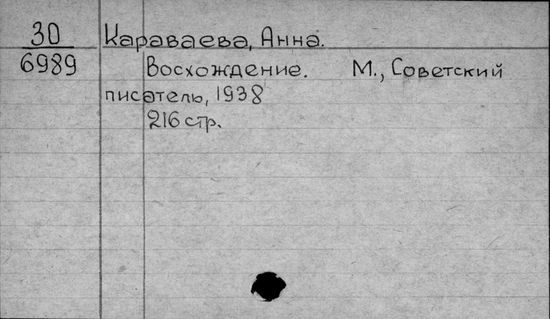 30 Караваева, Анна.
6989 Восхождение. М., Советский
писатель, 1938
216 стр.